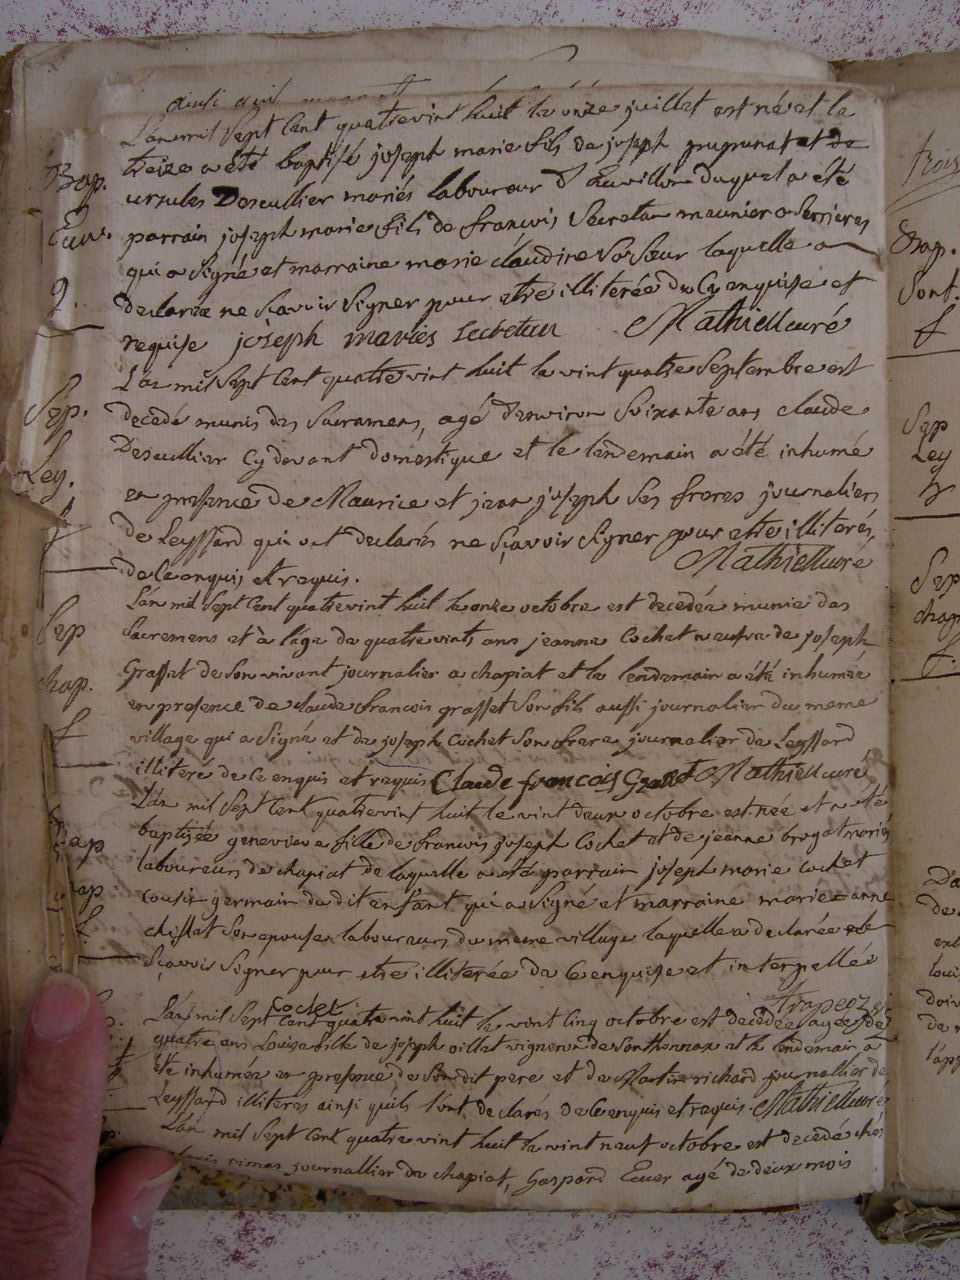 ainsi quil
L'an mil Sept Cent quatrevint huit le onze juillet est né et le
Bap. treize a eté baptisé joseph marie fils de joseph prupunat et de
ursules Descullier mariés laboureur d'Euvillon duquel a été
Euv. parrain joseph marie fils de françois Secretan meunier a Serrieres
qui a Signé et marraine marie claudine Sa Sœur laquelle a
2. declarée ne Scavoir Signer pour etre illiterée de Ce enquise et
requise joseph maries Secretan Mathieu curé
L'an mil Sept Cent quatre vint huit le vint quatre Septembre est
Sep. decedé munis des Sacramens, agé d'environ Soixante ans claude
Descullier Cy devant domestique et le lendemain a été inhumé
Ley. en presence de Maurice et jean joseph Ses freres journaliers
f de Leyssard qui ont declarés ne Scavoir Signer pour etre illiterés,
de Ce enquis et requis. Mathieu curé
L'an mil Sept Cent quatrevint huit le onze octobre est decedée munie des
Sep Sacremens et à l'age de quatre vints ans jeanne Cochet veufve de joseph
Grasset de Son vivant journalier a chapiat et le lendemain a été inhumée
chap. en presence de claude francois grasset Son fils aussi journalier du meme
f village qui a Signé et de joseph Cochet Son frere journalier de Leyssard
illiteré de Ce enquis et requis Claude francois Grasset Mathieu curé
L'an mil Sept Cent quatrevint huit le vint deux octobre est née et a été
Bap baptisée genevieve fille de francois joseph Cochet et de jeanne brogat mariés
laboureurs de chapiat de laquelle a été parrain joseph marie cochet
chap cousin germain du dit enfant qui a Signé et marraine mariée anne
f. chissat Son epouse laboureurs du meme village laquelle a declarée ne
Scavoir Signer pour etre illiterée de Ce enquise et interpellée
Cochet
L'an mil Sept Cent quatre vint huit le vint Cinq octobre est decedée agée de
quatre ans Louise fille de joseph oillat vigneron de Sonthonnax et le lendemain a
été inhumée en presence de Son dit pere et de Martin richard journallier de
Leyssard illiteres ainsi quils l'ont declarés de Ce enquis et requis. Mathieu curé
L'an mil Sept Cent quatre vint huit le vint neuf octobre est decedé chés
journallier de chapiat, Gaspard Ecuer agé de deux mois
trois
Bap.
Sont.
f
Sep
Ley
Sep
chap
f.